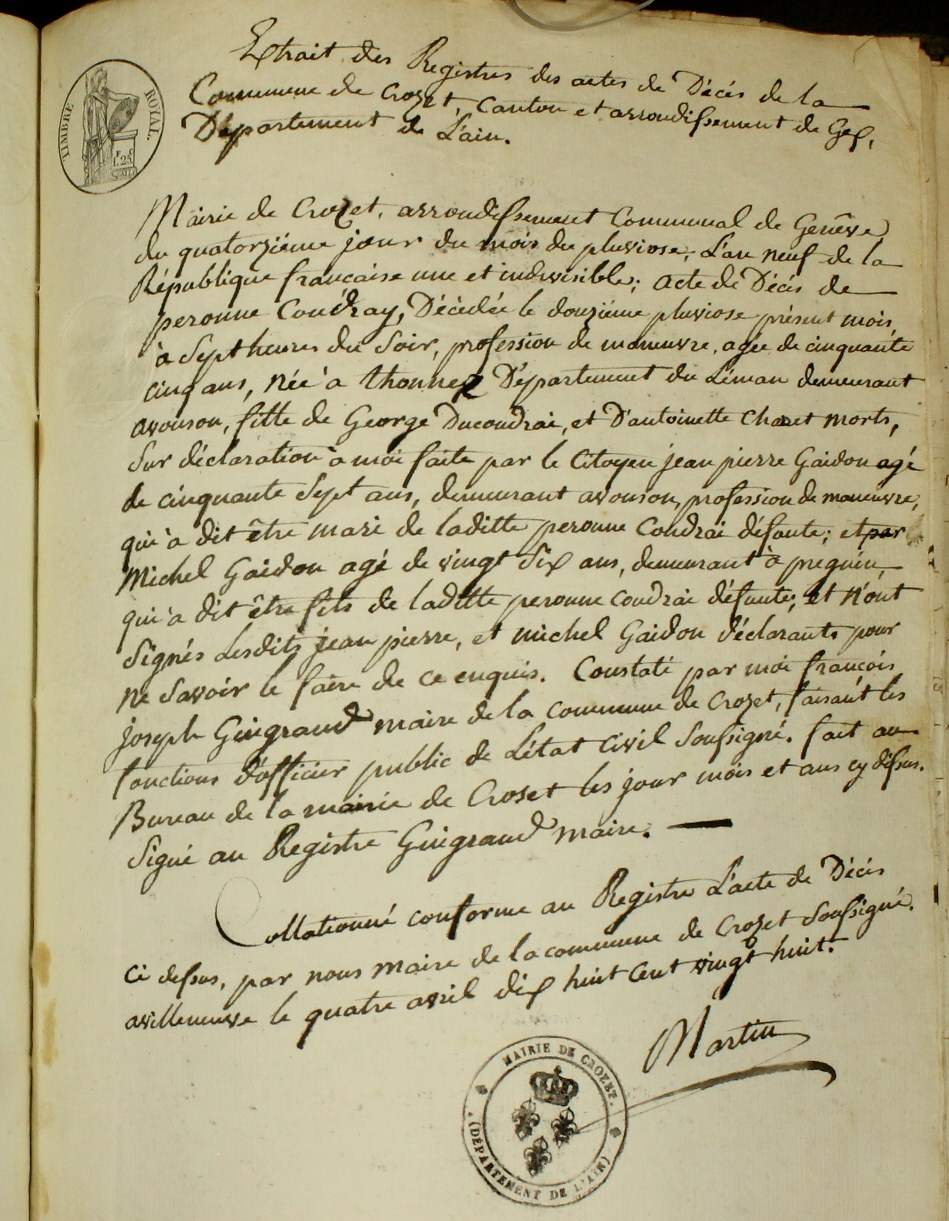 TIMBRE ROYAL.
1.25
Extrait des Registres des actes de Décès de la
Commune de Crozet, canton et arrondissement de Gex,
Département de L'ain.
Mairie de Crozet, arrondissement Communal de Genêve
du quatorzième jour du mois du pluviose, L'an neuf de la
République française une et indivisible; acte de Décès de
peronne Coudray, Décédée le douzième pluviose présent mois,
à Sept heures du Soir, profession de manœuvre, agée de cinquante
cinq ans, née à thonnex Département du Léman demeurant
avouson, fille de George Ducoudrai, et D'antoinette morts,
Sur déclaration à moi faite par le Citoyen jean pierre Gaidon agé
de cinquante Sept ans, demeurant avouson, profession de maneuvre,
qui à dit être mari de laditte peronne Coudrai défunte; et par
Michel Gaidon agé de vingt Six ans, demeurant à pregnin,
qui à dit être fils de laditte peronne coudrai défunte, et n'ont
Signés Lesdits jean pierre, et michel Gaidon déclarants pour
ne Savoir le faire de ce enquis. Constaté par moi françois
joseph Gingrand maire de la commune de Crozet, faisant les
fonctions d'officier public de L'état Civil Soussigné. fait au
Bureau de la mairie de Crozet les jour mois et ans cy dessus.
Signé au Registre Gingrand maire.
Collationné conforme au Registre L'acte de Décès
Ci dessus, par nous maire de la commune de Crozet Soussigné.
avilleneuve le quatre avril dix huit cent vingt huit.
Martin
MAIRIE DE CROZET.
(DÉPARTEMENT DE L'AIN)